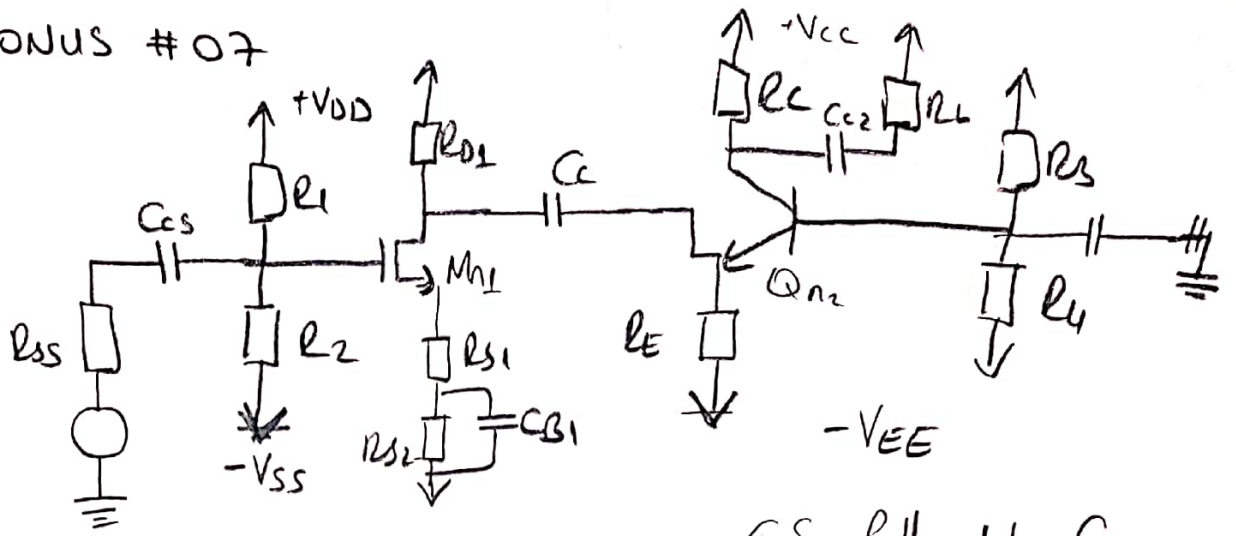 ONUS #07
+VDD
R1
CCS
RSS
R2
-VSS
RD1
Mn1
RS1
RS2
CB1
CC
+VCC
RC
CC2
RL
Qn2
RE
R3
R4
-VEE